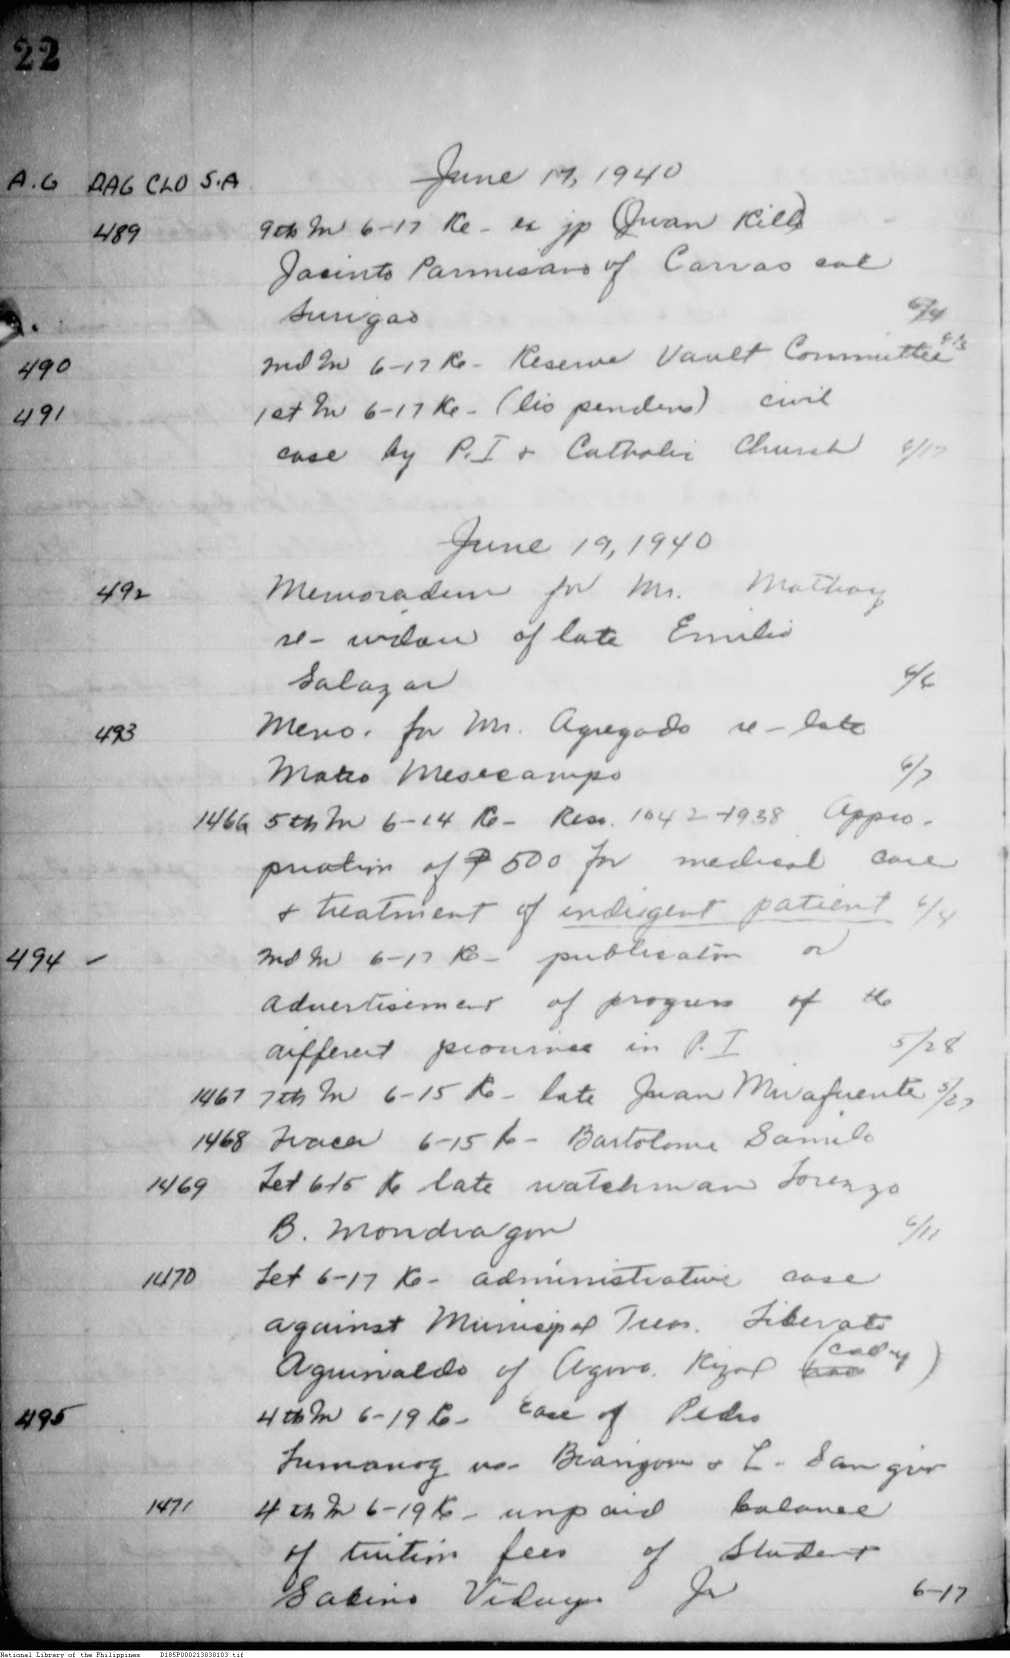 22
A.G DAG CLO S.A June 17, 1940
489 9th In 6-17 Re - ex jp (Juan Kill)
Jacinto Parmisano of Carras
Surigao 6/4
490 2nd In 6-17 Re - Reserve Vault Committee 6/3
491 1st In 6-17 Re - (lis pendens) civil
case by P.I & Catholic Church 6/17
June 19, 1940
492 Memoradum for Mr. Mathay
re - widow of late Emilio
Salazar 6/6
493 Memo. for Mr. Agregado re - late
Mateo 6/7
1466 5th In 6-14 Re - Reso. 1042-1938 Appro-
priation of ₱500 for medical care
& treatment of indigent patient 6/4
494 - 2nd In 6-17 Re - publication or
advertisement of progress of the
different provinces in P.I 5/28
1467 7th In 6-15 Re - late Juan Mirafuente 5/27
1468 Tracer 6-15 Re - Bartolome
1469 Let 6-15 Re late watchman Lorenzo
B. Mondragon 6/11
1470 Let 6-17 Re - administrative case
against Municipal Treas. Liberato
Aguinaldo of Agono. Rizal )
495 4th In 6-19 Re - case of Pedro
Lumanog vs - & L.
1471 4th In 6-19 Re - unpaid balance
of tuition fees of student
Sabino Jr 6-17
National Library of the Philippines D185P000213838103.tif